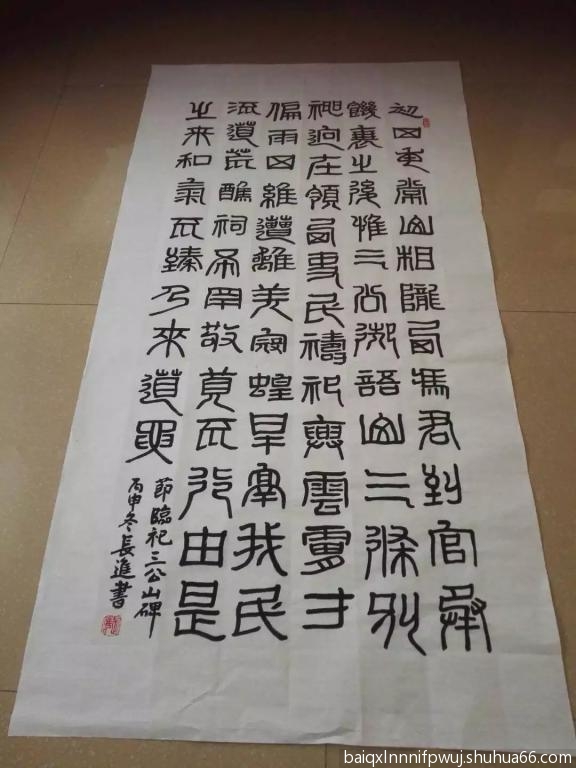 初四年常山相隴西馮君到官承
饑衰之後惟三公御語山三條別
神迥在領西吏民禱祀興雲膚寸
偏雨四維遭離羌寇蝗旱鬲我民
流道荒醮祠希罕敬奠不行由是
之來和氣不臻乃來道要
節臨祀三公山碑
丙申冬長進書
baiqxlnnnifpwuj.shuhua66.com